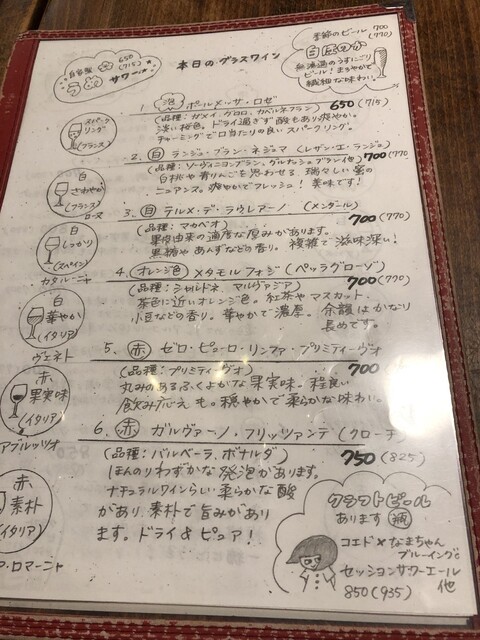 自家製
うめサワー
650
(715)
本日のグラスワイン
季節のビール 700
(770)
白
無濾過のうすにごり
ビール！まろやかで
繊細な味わい。
スパーク
リング
(フランス)
1. 泡 ポールメ・サ・ロゼ
(品種：ガメイ・グロロ、カベルネフラン) 650 (715)
淡い桜色。ドライ過ぎず酸もあり爽やか。
チャーミングで口当たりの良いスパークリング。
白
さわやか
(フランス)
ローヌ
2. 白 ランジュ・ブラン・ネジュマ (レザン・エ・ランジュ)
(品種：ソーヴィニヨンブラン、グルナッシュブラン他) 700 (770)
白桃や青りんごを思わせる瑞々しい蜜の
ニュアンス。爽やかでフレッシュ！美味です！
白
しっかり
(スペイン)
カタルーニャ
3. 白 テルメ・デ・ラウレアーノ (メンダール)
(品種：マカベオ) 700 (770)
果皮由来の適度な厚みがあります。
黒糖やあんずなどの香り。複雑で滋味深い！
白
華やか
(イタリア)
ヴェネト
4. オレンジ色 メタモルフォジ (ペッラグローゾ)
(品種：シャルドネ、マルヴァジア) 700 (770)
茶色に近いオレンジ色。紅茶やマスカット、
小豆などの香り。華やかで濃厚。余韻はかなり
長めです。
赤
果実味
(イタリア)
アブルッツオ
5. 赤 ゼロ・ピューロ・リンファ・プリミティーヴォ
(品種：プリミティーヴォ) 700
丸みのあるふくよかな果実味。程良い
飲み応えも。穏やかで柔らかな味わい。
赤
素朴
(イタリア)
ロマーニャ
6. 赤 ガルヴァーノ・フリッツァンテ (クローチ)
(品種：バルベーラ、ボナルダ) 750 (825)
ほんのりわずかな発泡があります。
ナチュラルワインらしい柔らかな酸
があり、素朴で旨みがあり
ます。ドライ＆ピュア！
クラフトビール
あります 瓶
コエド×なまちゃん
ブルーイングc
セッションサワーエール
850 (935) 他